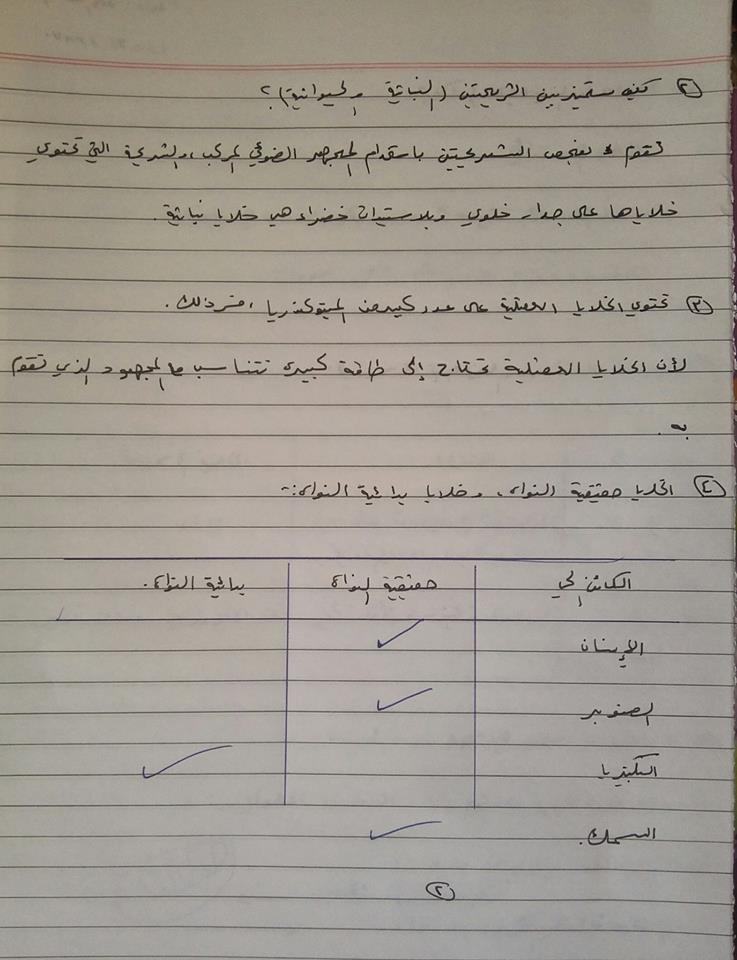 ٢) كيف ستميز بين الشريحتين (النباتية والحيوانية)؟
نقوم بفحص الشريحتين باستخدام المجهر الضوئي المركب، والشريحة التي تحتوي
خلاياها على جدار خلوي وبلاستيدات خضراء هي خلايا نباتية.
٣) تحتوي الخلايا العضلية على عدد كبير من الميتوكندريا، فسر ذلك.
لأن الخلايا العضلية تحتاج إلى طاقة كبيرة تتناسب مع المجهود الذي تقوم
به.
٤) الخلايا حقيقية النواة، وخلايا بدائية النواة:-
الكائن الحي حقيقية النواة بدائية النواة.
الإنسان ✓
الصنوبر ✓
البكتيريا ✓
السمك. ✓
٢